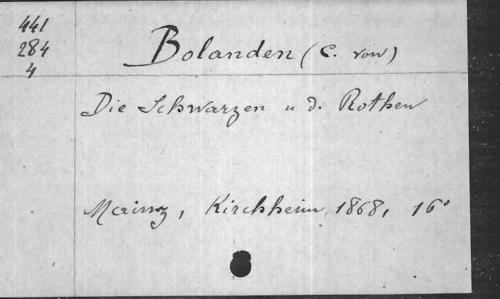 441
284
4
Bolanden (C. von)
Die Schwarzen u d. Rothen
Mainz, Kirchheim, 1868, 16°